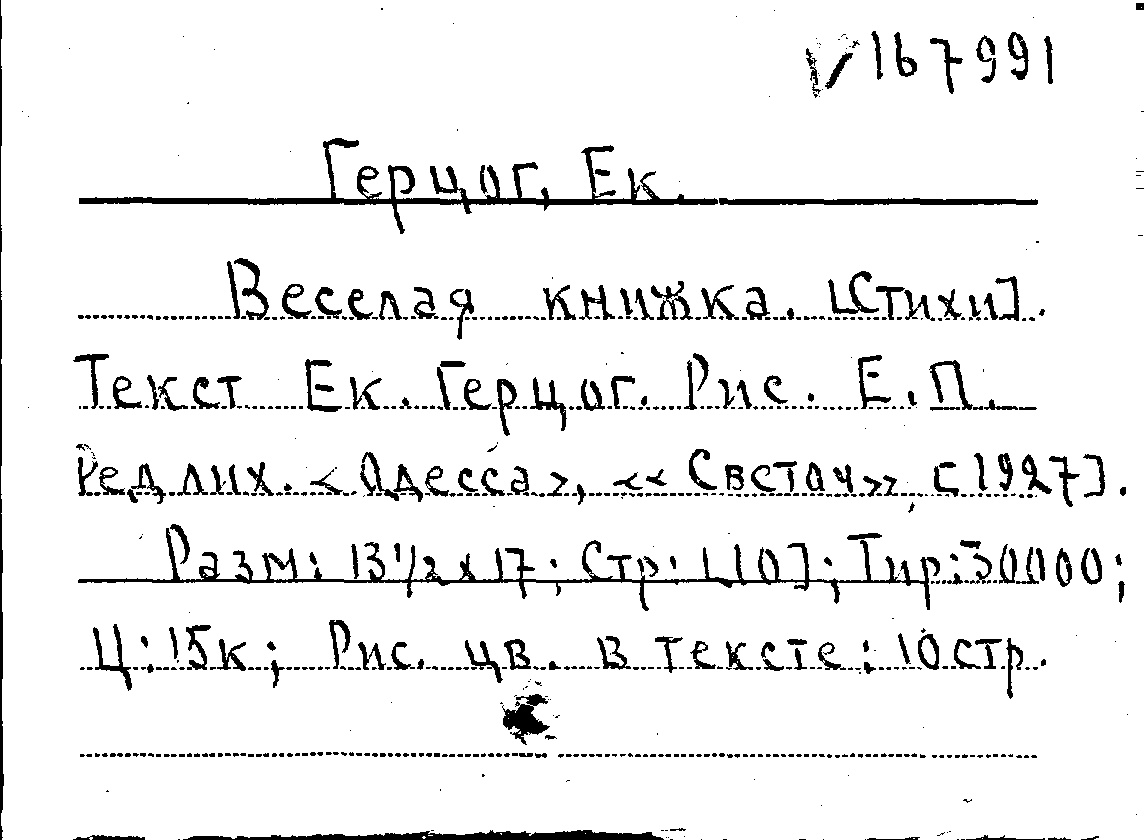 √167991
Герцог, Ек.
Веселая книжка. [Стихи].
Текст Ек. Герцог. Рис. Е.П.
Ред лих. < Одесса >, << Светоч >> [1927].
Разм: 13 1/2 x 17; Стр: [10]; Тир: 30000;
Ц: 15к; Рис. цв. в тексте: 10стр.